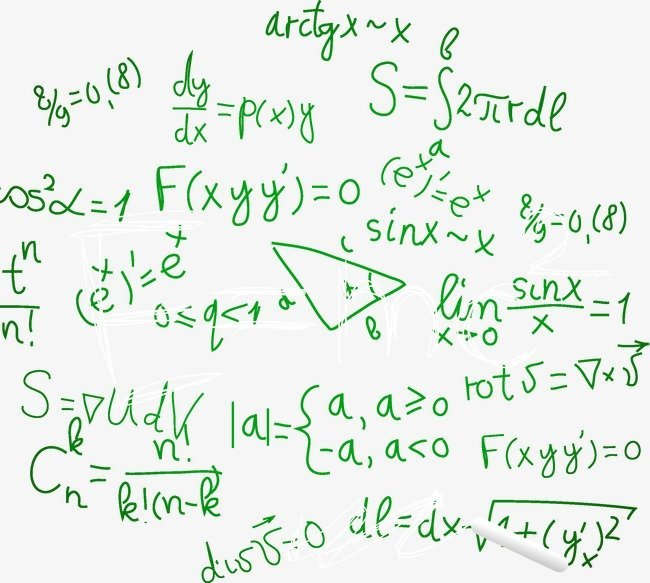 arctgx ~ x
8/9=0,(8)
dy/dx = p(x)y
S=∫2πrdl
a b
cos²α=1
F(xyy')=0
(eˣ)'=eˣ
sinx ~ x
8/9=0,(8)
tⁿ/n!
(eˣ)'=eˣ
0≤q<1
a b c
lim x→0 sinx/x = 1
S=∇UdV
|a|={a, a≥0
-a, a<0
rot v = ∇×v⃗
F(xyy')=0
Cₙᵏ = n!/k!(n-k
div v⃗=0
dl=dx √1+(y'ₓ)²